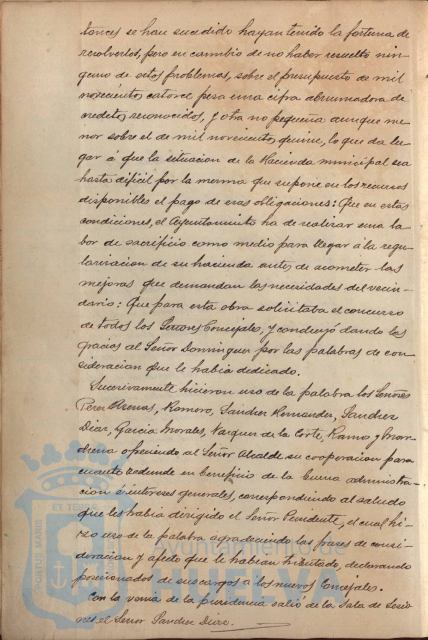 tonces se han sucedido hayan tenido la fortuna de
resolverlos, pero en cambio de no haber resuelto nin-
guno de estos problemas, sobre el presupuesto de mil
novecientos catorce pesa una cifra abrumadora de
creditos reconocidos, y otra no pequeña aunque me
nor sobre el de mil novecientos quince, lo que da lu-
gar á que la situacion de la Hacienda municipal sea
hasta dificil por la merma que supone en los recursos
disponibles el pago de esas obligaciones: Que en estas
condiciones, el Ayuntamiento ha de realizar una la-
bor de sacrificio como medio para llegar a la regu-
larizacion de su hacienda antes de acometer las
mejoras que demandan las necesidades del vecin-
dario: Que para esta obra solicitaba el concurso
de todos los Señores Concejales, y concluyó dando las
gracias al Señor Dominguez por las palabras de con-
sideracion que le habia dedicado.
Sucesivamente hicieron uso de la palabra los Señores
Perez Arenas, Romero, Sanchez Hernandez, Sanchez
Diaz, Garcia Morales, Vazquez de la Corte, Ramos y
ofreciendo al Señor Alcalde su cooperacion para
cuanto redunde en beneficio de la buena administra-
cion é intereses generales, correspondiendo al saludo
que les habia dirigido el Señor Presidente, el cual hi-
zo uso de la palabra agradeciendo las frases de consi-
deracion y afecto que le habian tributado, declarando
posicionados de sus cargos a los nuevos Concejales.
Con la venia de la presidencia salió de la Sala de Sesio
nes el Señor Sanchez Diaz.
Ayuntamiento de
HUELVA
PORTUS MARIS
ET TE